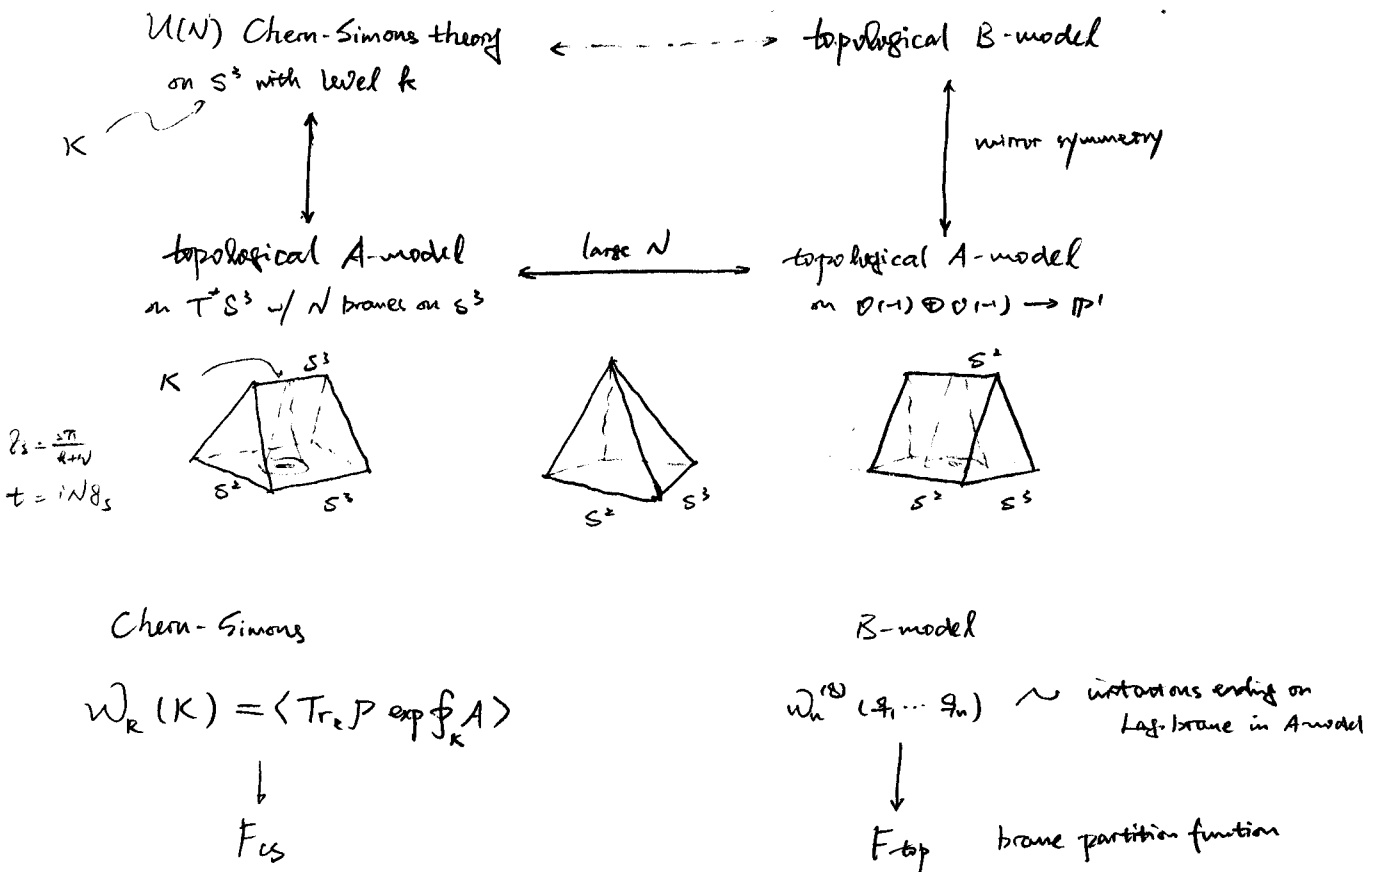 U(N) Chern-Simons theory
on S³ with level k
K
topological B-model
mirror symmetry
topological A-model
on T*S³ w/ N branes on S³
large N
topological A-model
on O(-1) ⊕ O(-1) → P¹
K
S³
S²
S³
S²
S³
S²
S²
S³
g_s = 2π/(k+N)
t = iNg_s
Chern-Simons
W_R(K) = <Tr_R P exp ∮_K A>
F_CS
B-model
W_n^(g) (q_1 ... q_n) ~ instantons ending on
Lag. brane in A-model
F_top brane partition function